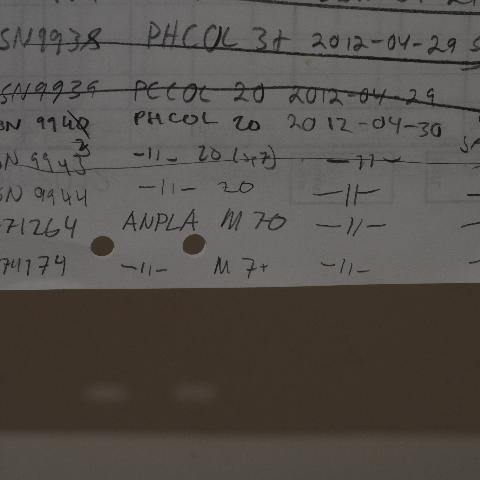 SN9938 PHCOL 3+ 2012-04-29 S
SN9939 PCCOL 20 2012-04-29
SN 9942 PHCOL 20 2012-04-30
SN 9943 -11- 20 (+7) -11-
SN 9944 -11- 20 -11-
71264 ANPLA M 70 -11-
74174 -11- M 7+ -11-